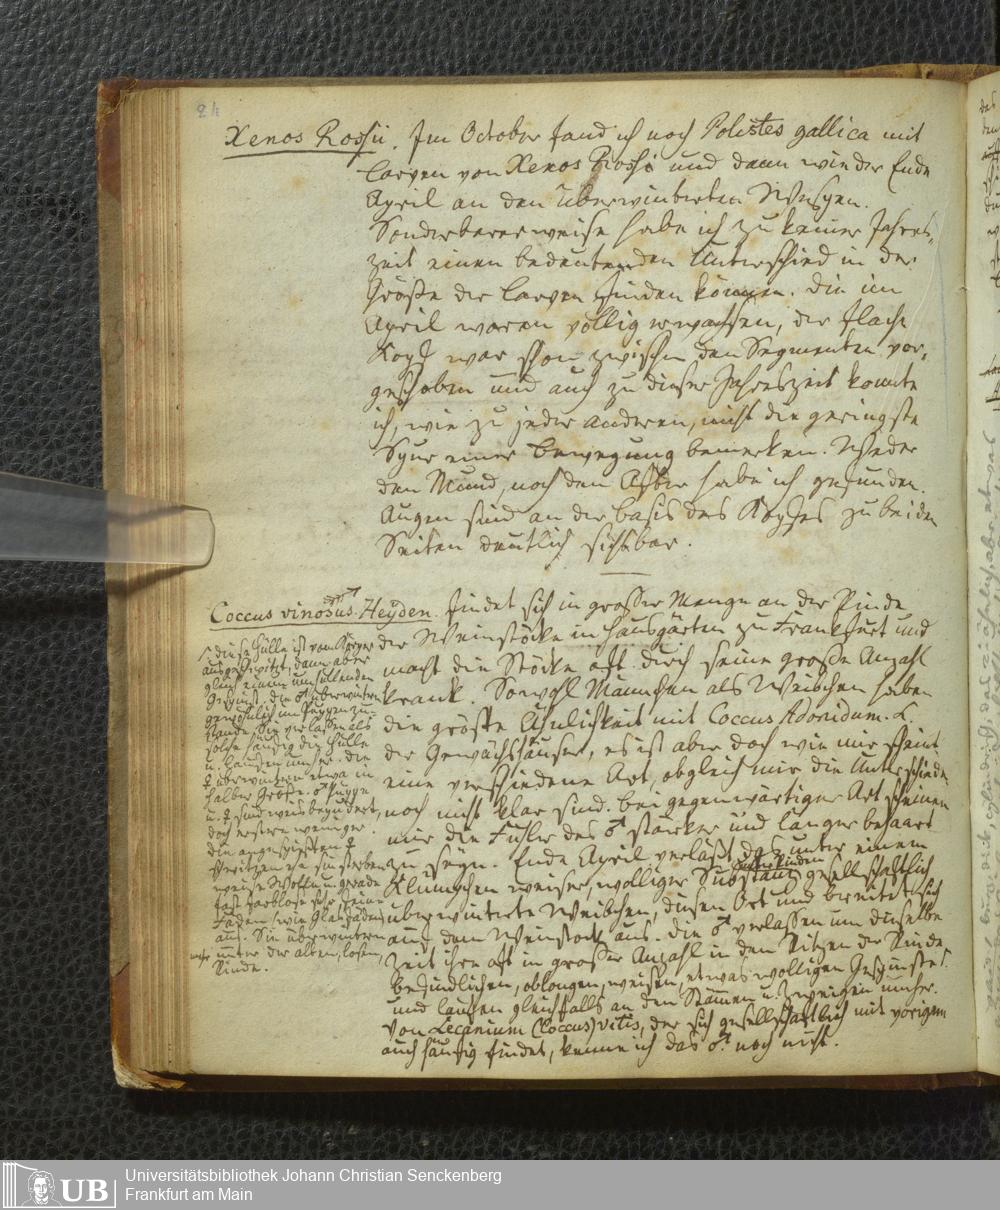 24
Xenos Rossii. Im October fand ich noch Polistes gallica mit
Larven von Xenos Rossi und dann wieder Ende
April an den überwinterten Wespen.
Sonderbarerweise habe ich zu keiner Jahres-
zeit einen bedeutenden Unterschied in der
Größe der Larven finden können. Die im
April waren völlig erwachsen, der flache
Kopf war schon zwischen den Segmenten vor-
geschoben und auch zu dieser Jahreszeit konnte
ich, wie zu jeder anderen, nicht die geringste
Spur einer Bewegung bemerken. Weder
den Mund, noch den After habe ich gefunden.
Augen sind an der Basis des Kopfes zu beiden
Seiten deutlich sichtbar.
Coccus vinosus Heyden. findet sich in großer Menge an der Rinde
der Weinstöcke in Hausgärten zu Frankfurt und
macht die Stöcke oft durch seine große Anzahl
krank. Sowohl Männchen als Weibchen haben
die größte Ähnlichkeit mit Coccus Adonidum. L.
der Gewächshäuser, es ist aber doch wie mir scheint
eine verschiedene Art, obgleich mir die Unterschiede
noch nicht klar sind. Bei gegenwärtiger Art scheinen
mir die Fühler des ♂ stärker und länger behaart
zu seyn. Ende April verläßt das unter einem
Klümpchen weißer, wolliger Substanz gesellschaftlich
überwinterte Weibchen, diesen Ort und breitet sich
auf dem Weinstock aus. Die ♂ verlassen um dieselbe
Zeit ihre oft in großer Anzahl in den Ritzen der Rinde
befindlichen, oblongen, weißen, etwas wolligen Gespinste
und laufen gleichfalls an den Stämmen u. Zweigen umher.
Von Lecanium (Coccus) vitis, der sich gesellschaftlich mit vorigem
auch häufig findet, kenne ich das ♂ noch nicht.
diese Hülle ist vom Körper
ausgeschwitzt, dann aber
gleich einem umhüllenden
Gespinst. Die ♂ überwintern
gewöhnlich im Puppenzu-
stande. Sie verlassen als
solche häufig die Hülle
u. laufen umher. Die
♀ überwintern etwa in
halber Größe. ♂ Puppe
u. ♀ sind weis bepudert,
doch erstere weniger.
Die
weise Wolle u. gerade
fast farblose sehr feine
Fäden (wie Glasfäden)
aus. Sie überwintern
unter der alten, losen,
Rinde.
Universitätsbibliothek Johann Christian Senckenberg
Frankfurt am Main
UB